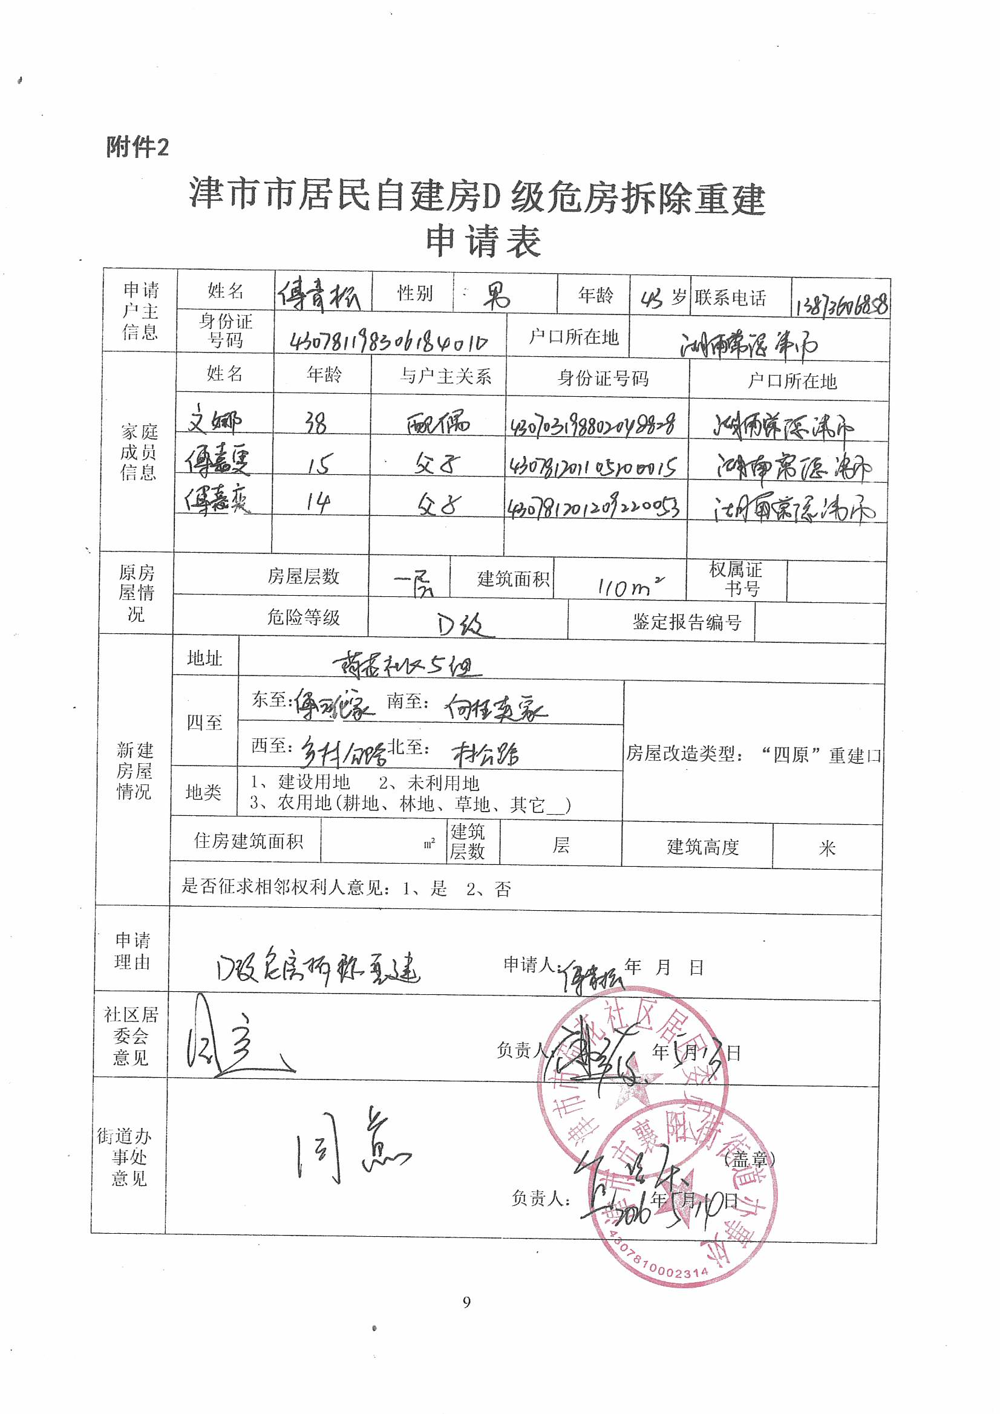 附件2
津市市居民自建房D级危房拆除重建
申请表
申请户主信息 姓名 傅青松 性别 男 年龄 43岁 联系电话 13873606858
身份证号码 430781198306184010 户口所在地 湖南常德津市
家庭成员信息 姓名 年龄 与户主关系 身份证号码 户口所在地
文娜 38 配偶 430703198802048828 湖南常德津市
傅嘉 15 父子 430781201105200015 湖南常德津市
傅嘉奕 14 父子 430781201209220053 湖南常德津市
原房屋情况 房屋层数 一层 建筑面积 110m² 权属证书号
危险等级 D级 鉴定报告编号
新建房屋情况 地址 社区5组
四至 东至: 傅 家 南至: 向桂英家
西至: 乡村公路 北至: 村公路
房屋改造类型：“四原”重建口
地类 1、建设用地 2、未利用地
3、农用地(耕地、林地、草地、其它__)
住房建筑面积 m² 建筑层数 层 建筑高度 米
是否征求相邻权利人意见：1、是 2、否
申请理由 D级危房拆除重建 申请人: 傅青松 年 月 日
社区居委会意见 同意 负责人: 年5月13日
街道办事处意见 同意 (盖章)
负责人: 2026年5月14日
社区居民委员会
津市市襄阳街街道办事处
4307810002314
9